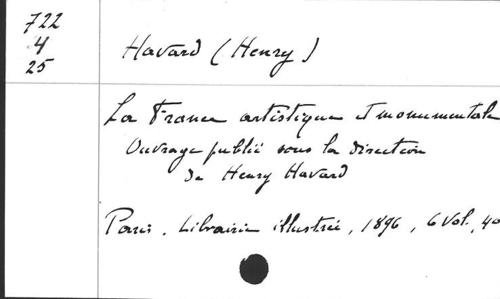 722
4
25
Havard (Henry)
La France artistique et monumentale
Ouvrage publié sous la direction
de Henry Havard
Paris. Librairie illustrée, 1896, 6 vol., 4o